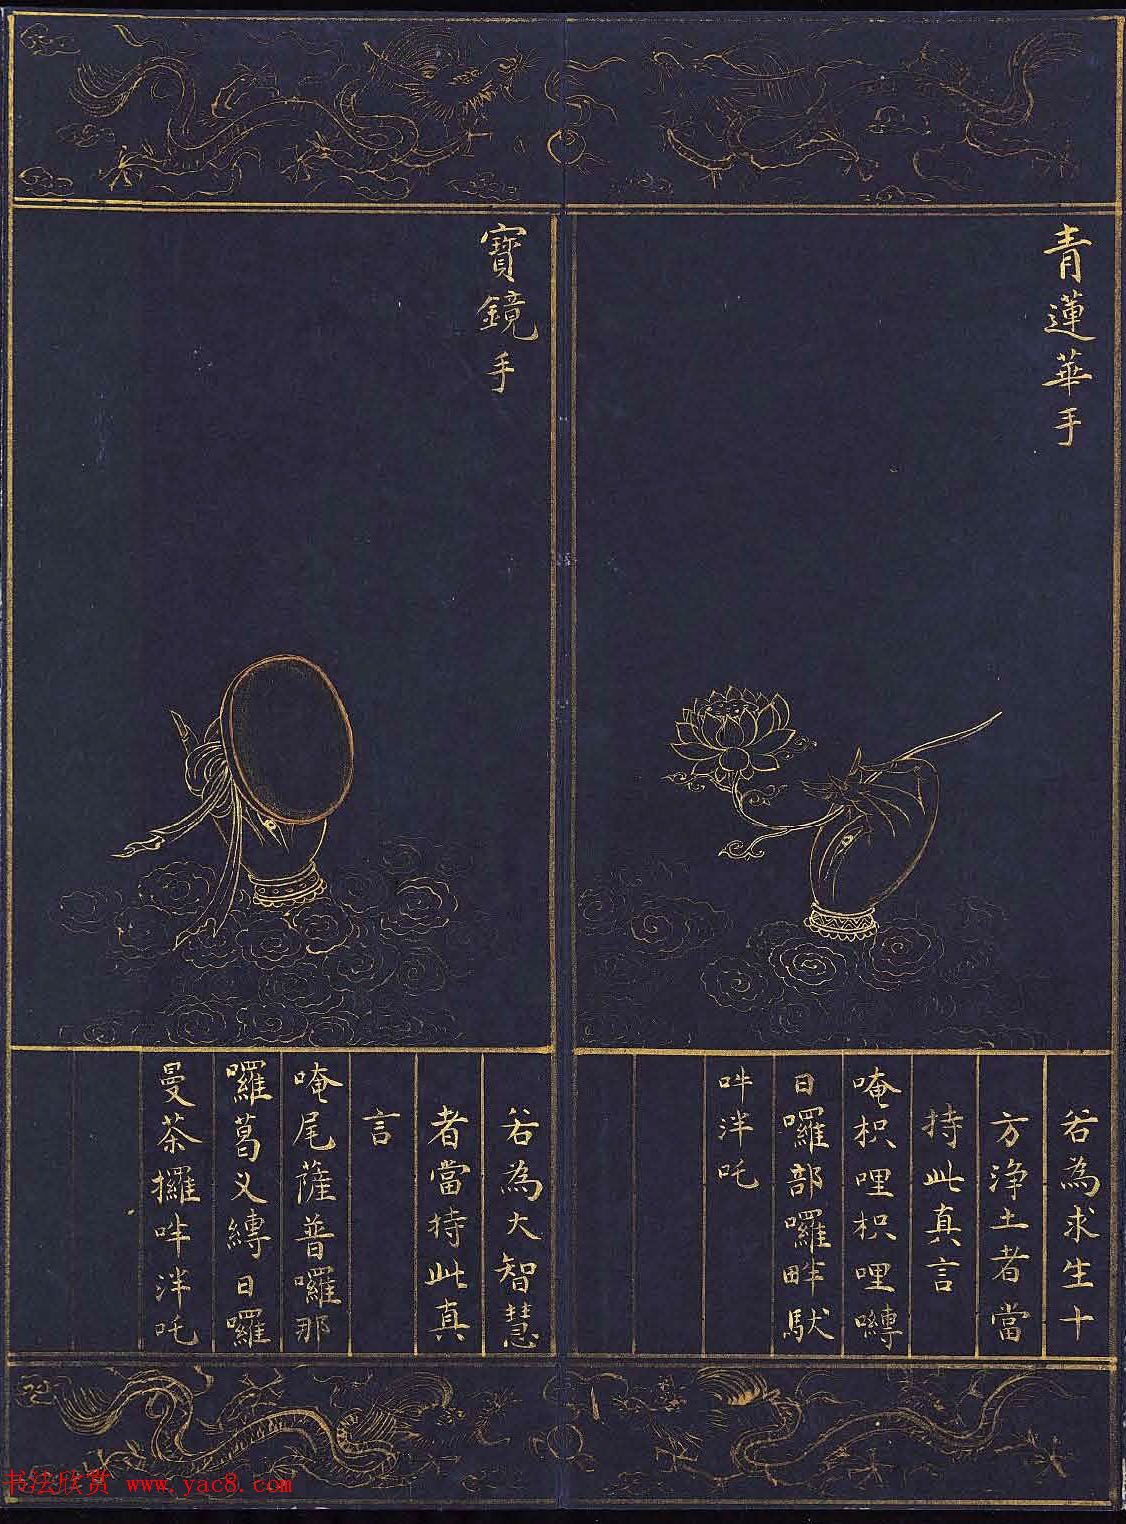 青蓮華手
若為求生十
方淨土者當
持此真言
唵枳哩枳哩嚩
日囉部囉畔馱
吽泮吒
寶鏡手
若為大智慧
者當持此真
言
唵尾薩普囉那
囉葛叉嚩日囉
曼荼攞吽泮吒
书法欣赏 www.yac8.com